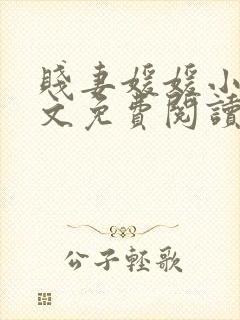 賤妻媛媛小
文免費閱讀
公子輕歌